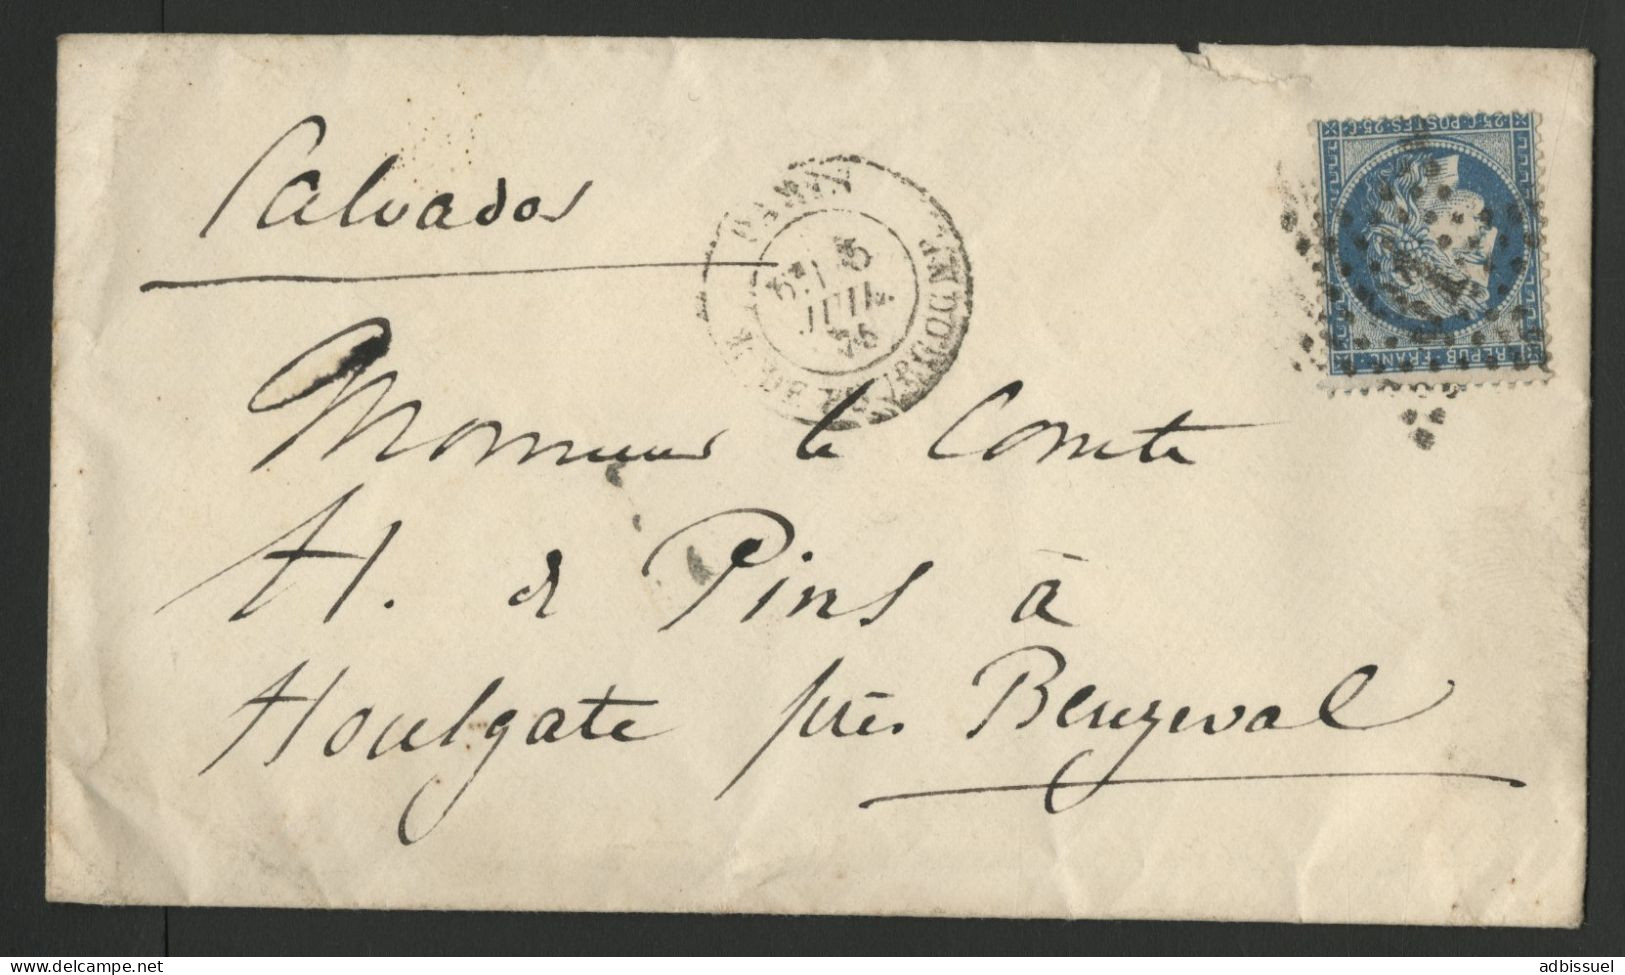 Calvados
PARIS
5E/ 5
JUIL.
75
Monsieur le Comte
H. de Pins à
Houlgate près Beuzeval
25 C. POSTES 25 C.
REPUB. FRANC.
www.delcampe.net
adbissuel